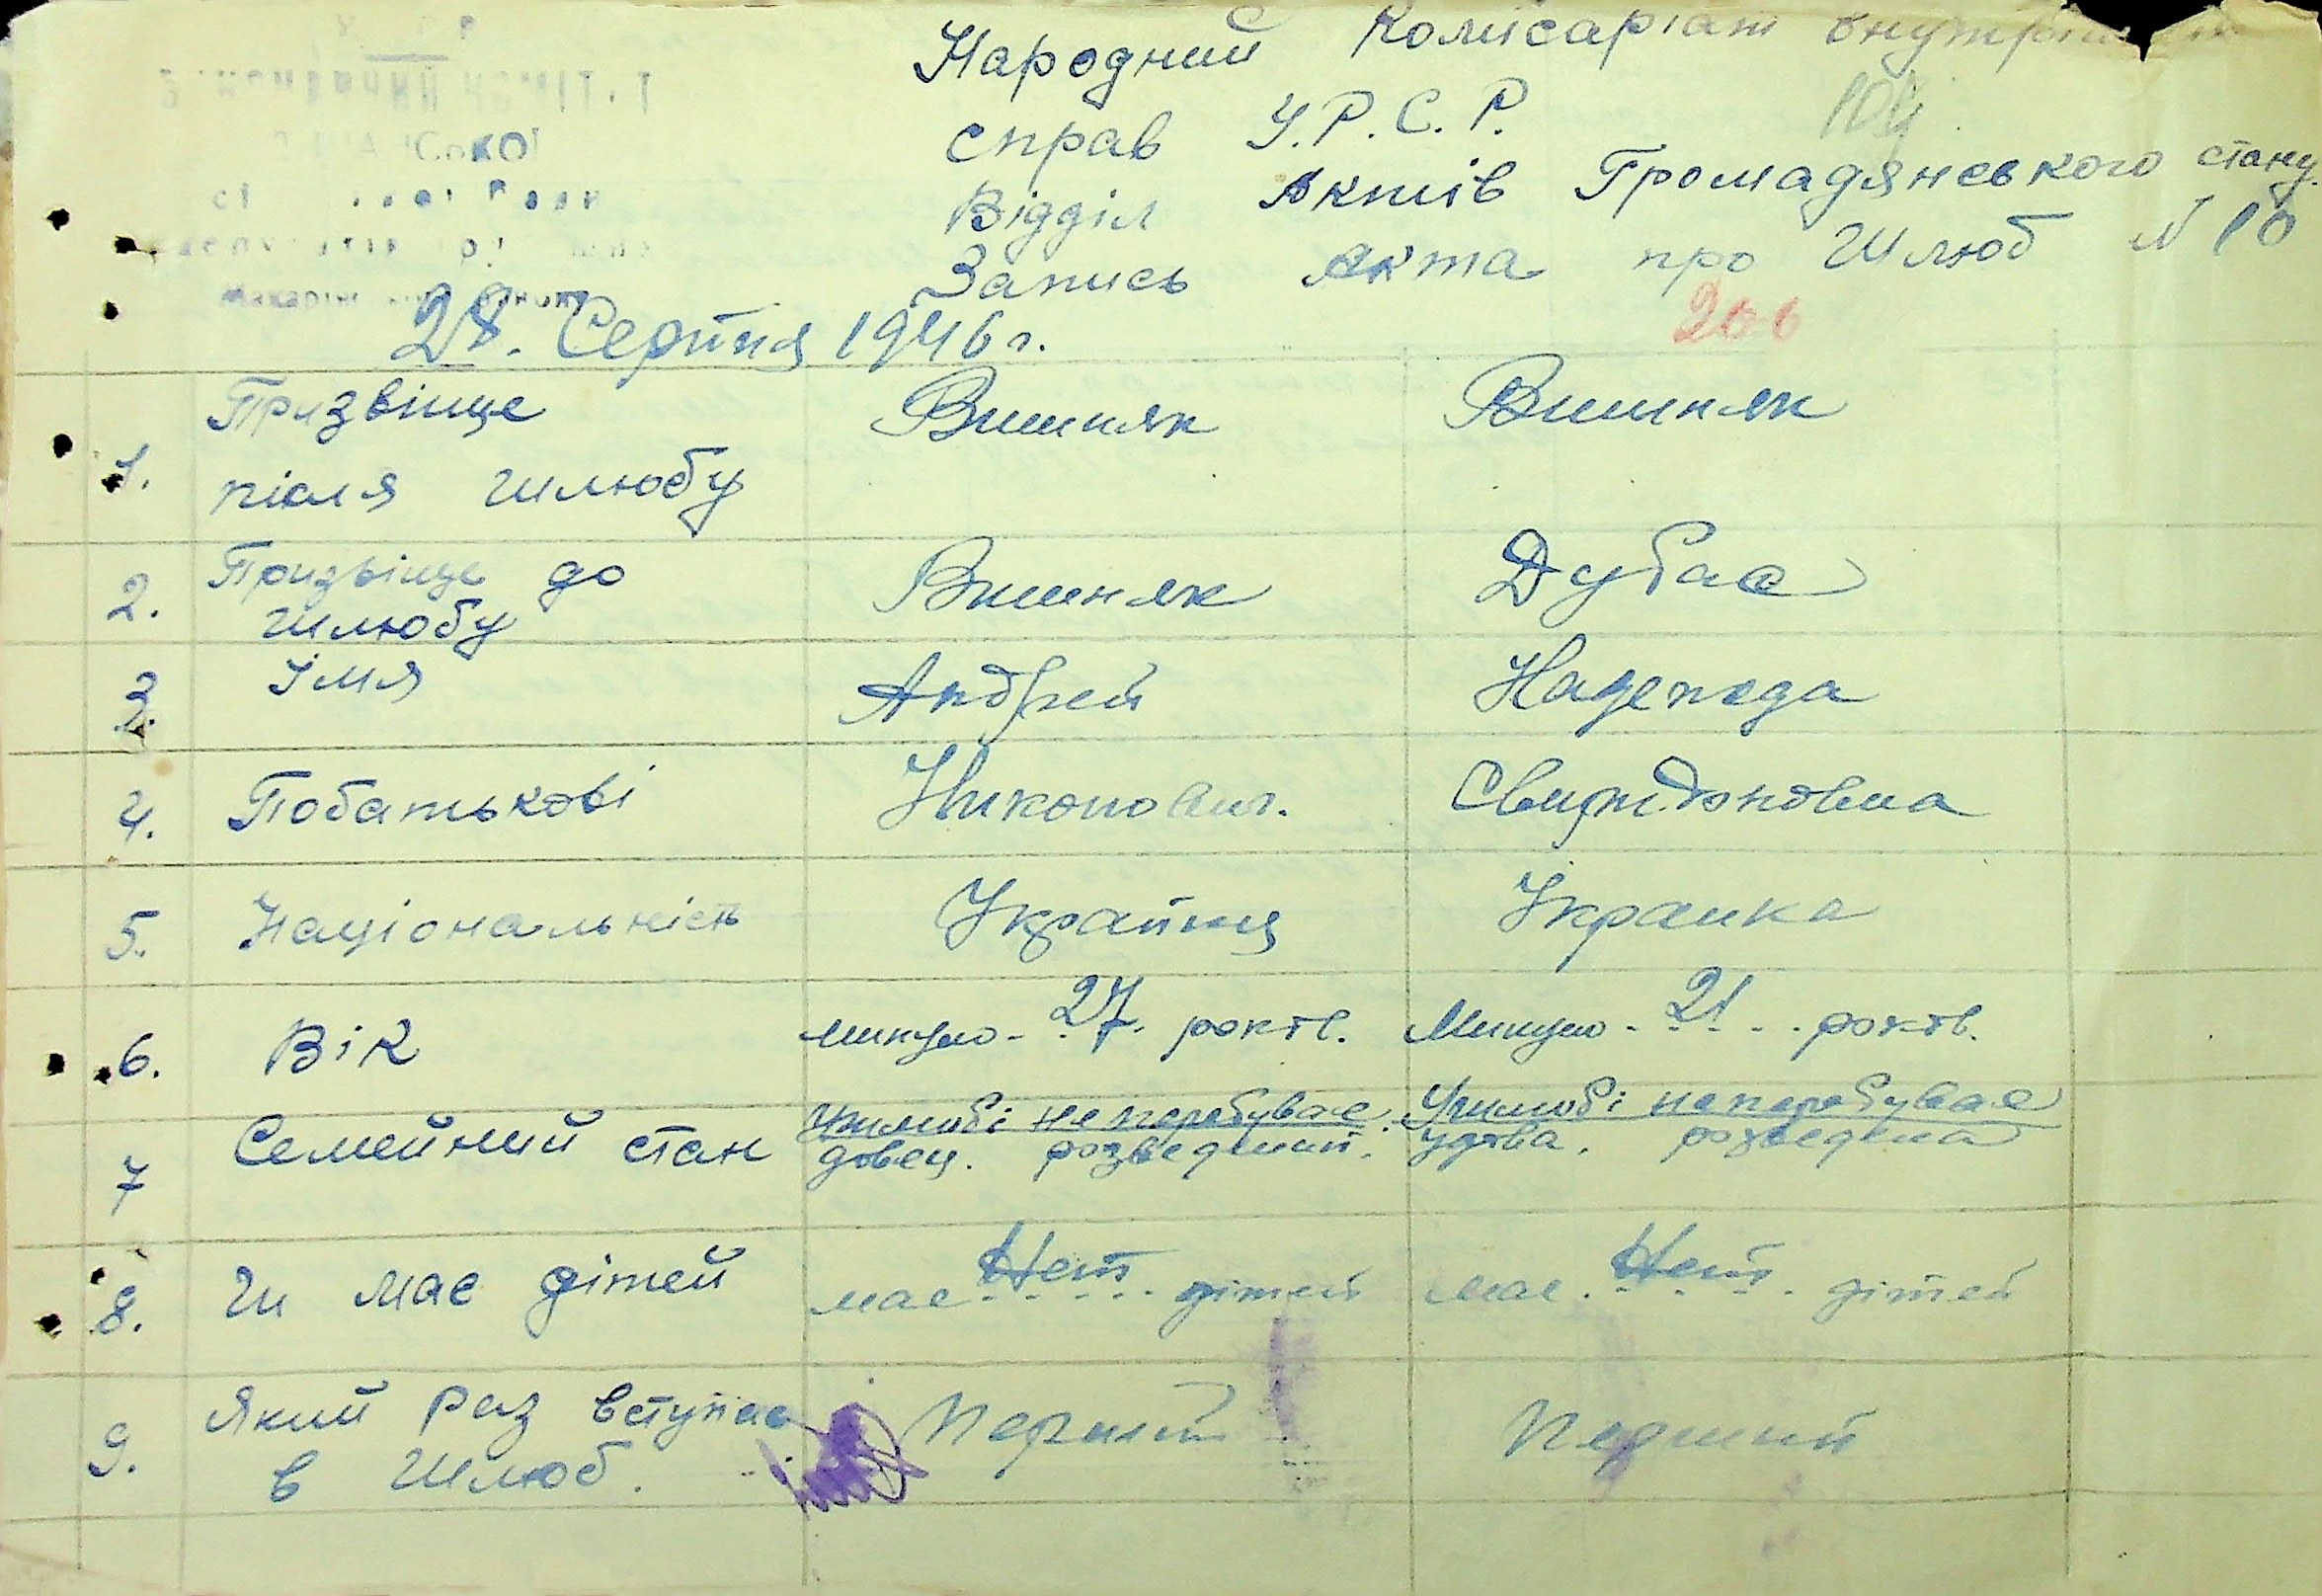 Народний Комісаріат внутрішніх
справ У.Р.С.Р.
Відділ Актів Громадянського стану.
Запись акта про Шлюб N 10
28. Серпня 1946 г.
1. Призвіще після шлюбу Вишняк Вишняк
2. Призвіще до шлюбу Вишняк Дубас
3. Імя Андрей Надежда
4. Побатькові Никонович. Свиридоновна
5. Національність Українця Украинка
6. Вік минуло - 27. років. Минуло - 21 - років.
7 Семейний стан Ушлюбі не перебувае. Ушлюбі не перебувае
довец. розведений. удова. розведена
8. Чи мае дітей мае Нет дітей мае Нет дітей
9. Який раз вступае в Шлюб. Перший Перший